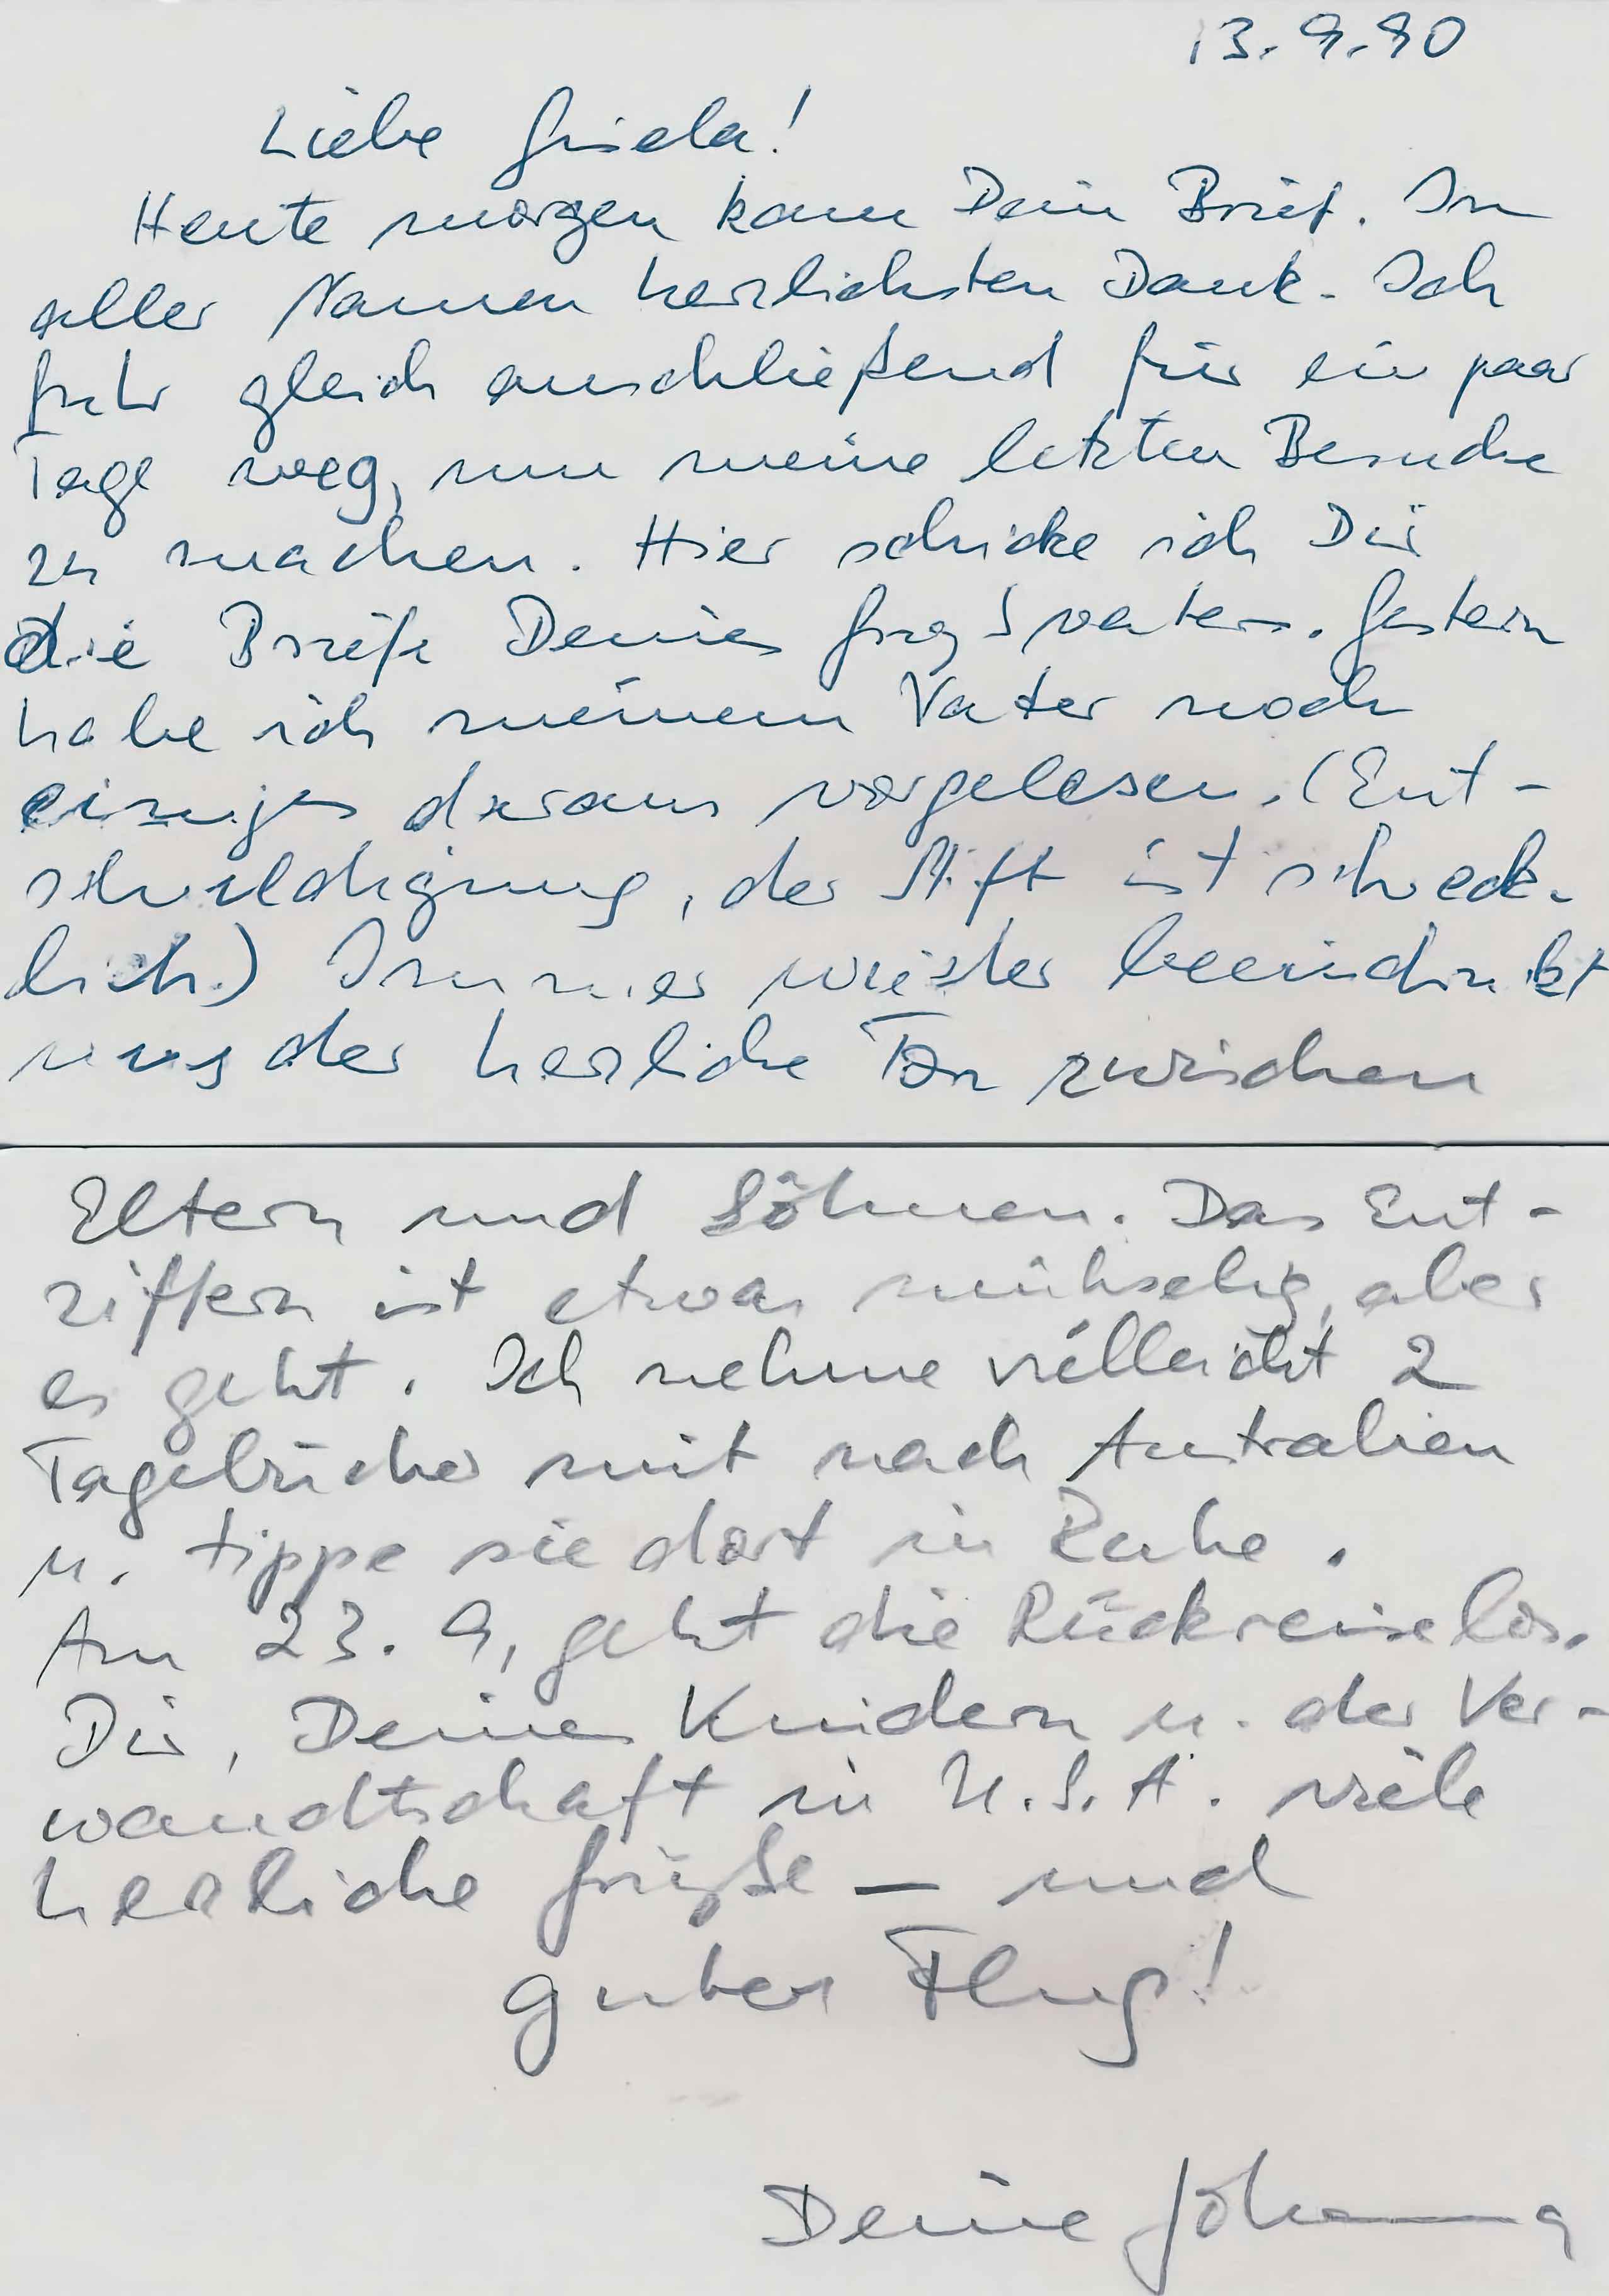 13.9.90
Liebe Gisela!
Heute morgen kam Dein Brief. In
aller Namen herzlichsten Dank. Ich
fuhr gleich anschließend für ein paar
Tage weg, um meine letzten Besuche
zu machen. Hier schicke ich Dir
die Briefe Deines Großvaters. Gestern
habe ich meinem Vater noch
einiges daraus vorgelesen. (Ent-
schuldigung, der Stift ist schreck-
lich.) Immer wieder beeindruckt
uns der herzliche Ton zwischen
Eltern und Söhnen. Das Ent-
ziffern ist etwas mühselig, aber
es geht. Ich nehme vielleicht 2
Tagebücher mit nach Australien
u. tippe sie dort in Ruhe.
Am 23. 9. geht die Rückreise los.
Dir, Deinen Kindern u. der Ver-
wandtschaft in U.S.A. viele
herzliche Grüße – und
guten Flug!
Deine Johanna